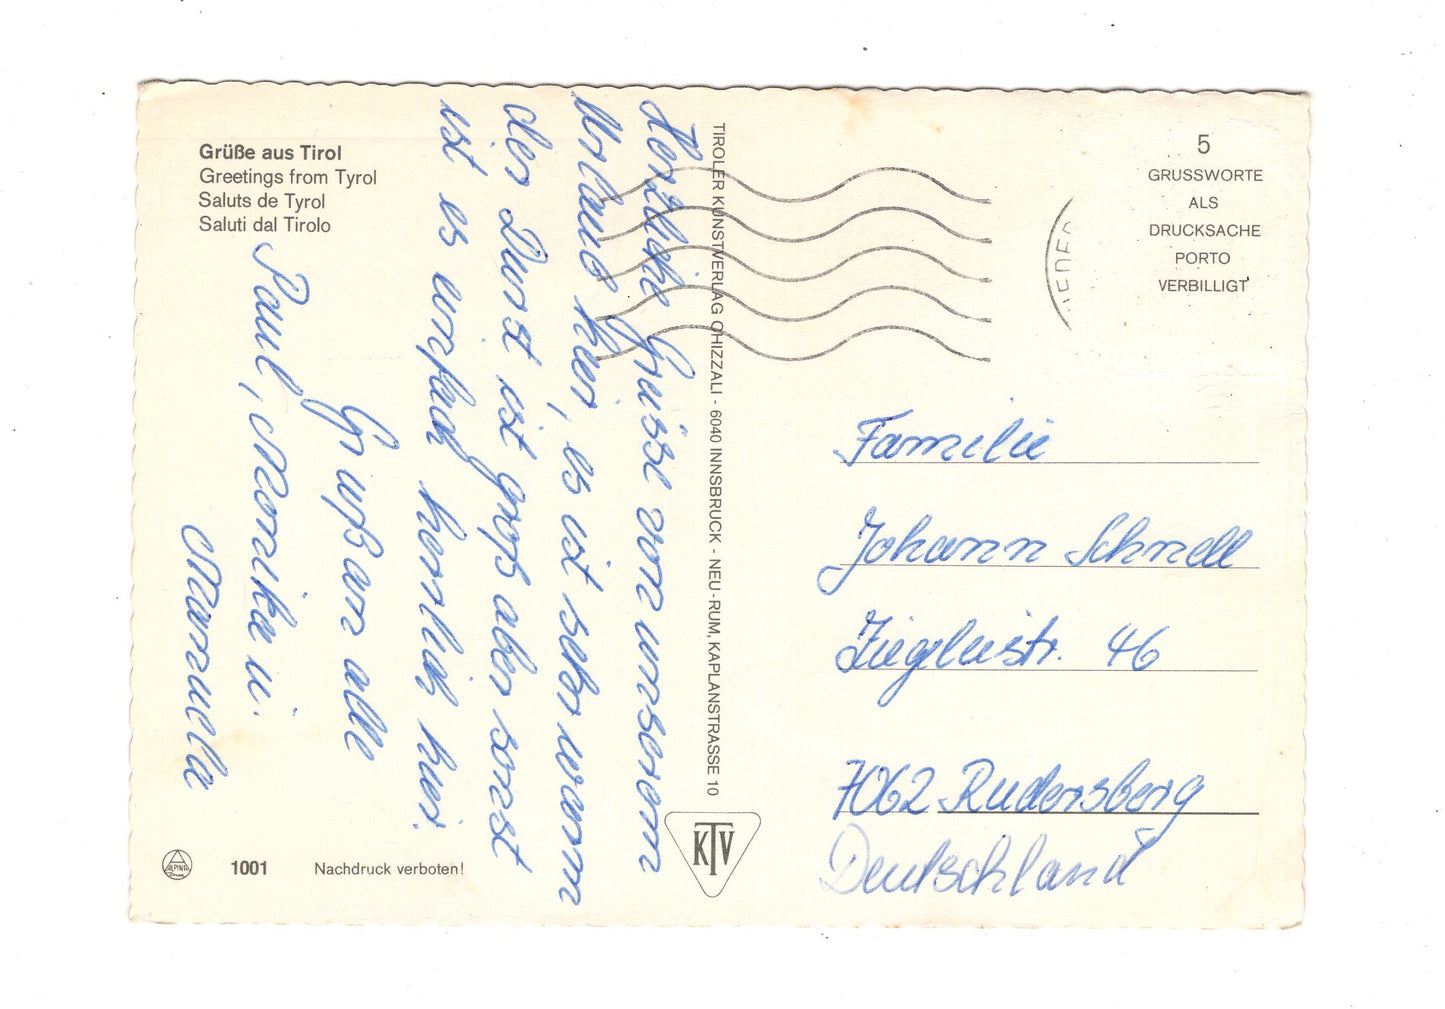 Grüße aus Tirol
Greetings from Tyrol
Saluts de Tyrol
Saluti dal Tirolo
Herzliche Grüsse von unserem
Urlaub hier, es ist sehr warm
der Durst ist groß aber sonst
ist es einfach herrlich hier.
Gruß an alle
Paul, Monika u.
Manuela
ALPINA
1001 Nachdruck verboten!
TIROLER KUNSTVERLAG CHIZZALI - 6040 INNSBRUCK - NEU-RUM, KAPLANSTRASSE 10
KTV
5
GRUSSWORTE
ALS
DRUCKSACHE
PORTO
VERBILLIGT
Familie
Johann Schnell
Zieglerstr. 46
7062 Rudersberg
Deutschland